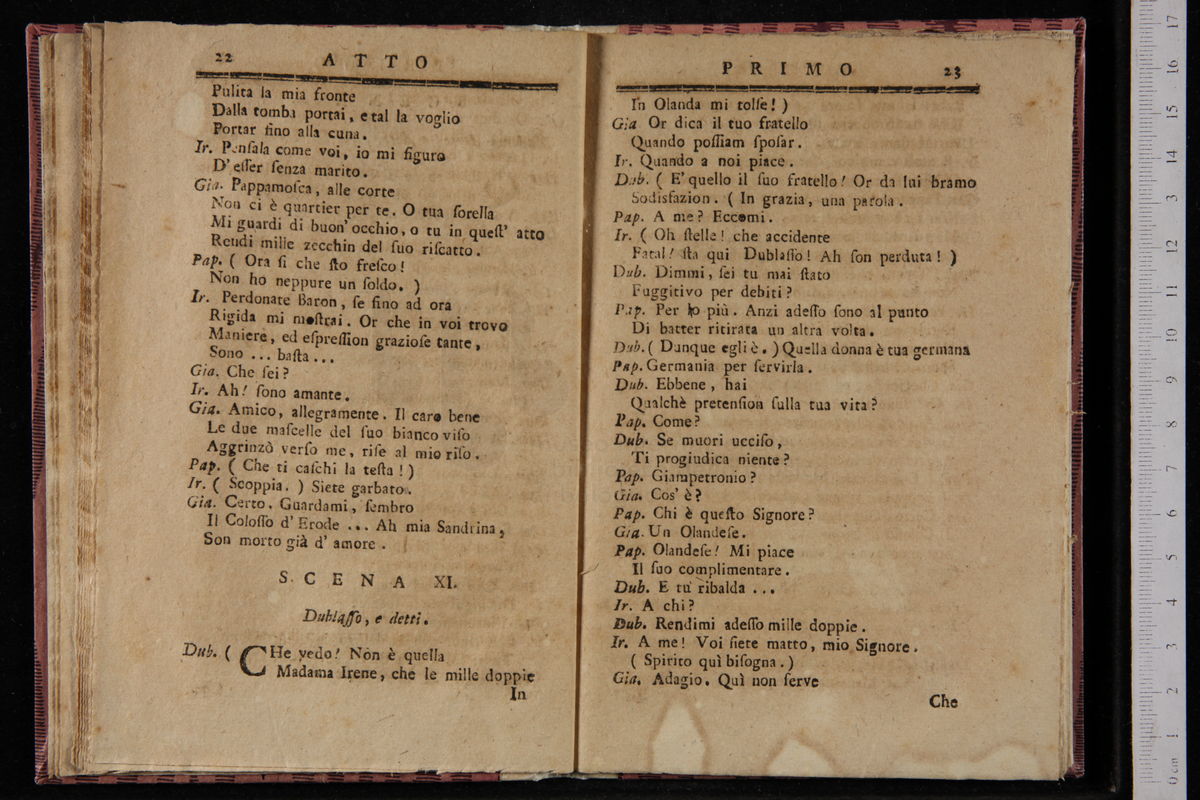 22 ATTO
Pulita la mia fronte
Dalla tomba portai, e tal la voglio
Portar fino alla cuna.
Ir. Penſala come voi, io mi figuro
D'eſſer ſenza marito.
Gia. Pappamoſca, alle corte
Non ci è quartier per te. O tua ſorella
Mi guardi di buon' occhio, o tu in queſt' atto
Rendi mille zecchin del ſuo riſcatto.
Pap. ( Ora ſi che ſto freſco!
Non ho neppure un ſoldo. )
Ir. Perdonate Baron, ſe fino ad ora
Rigida mi moſtrai. Or che in voi trovo
Maniere, ed eſpreſſion grazioſe tante,
Sono ... baſta ...
Gia. Che ſei?
Ir. Ah! ſono amante.
Gia. Amico, allegramente. Il caro bene
Le due maſcelle del ſuo bianco viſo
Aggrinzò verſo me, riſe al mio riſo.
Pap. ( Che ti caſchi la teſta! )
Ir. ( Scoppia. ) Siete garbato.
Gia. Certo. Guardami, ſembro
Il Coloſſo d'Erode ... Ah mia Sandrina,
Son morto già d' amore.
SCENA XI.
Dublaſſo, e detti.
Dub. ( CHe vedo! Non è quella
Madama Irene, che le mille doppie
In
PRIMO 23
In Olanda mi tolſe! )
Gia Or dica il tuo fratello
Quando poſſiam ſpoſar.
Ir. Quando a noi piace.
Dub. ( E' quello il ſuo fratello! Or da lui bramo
Sodisfazion. ( In grazia, una parola.
Pap. A me? Eccomi.
Ir. ( Oh ſtelle! che accidente
Fatal! ſta qui Dublaſſo! Ah ſon perduta! )
Dub. Dimmi, ſei tu mai ſtato
Fuggitivo per debiti?
Pap. Per lo più. Anzi adeſſo ſono al punto
Di batter ritirata un altra volta.
Dub. ( Dunque egli è. ) Quella donna è tua germana
Pap. Germania per ſervirla.
Dub. Ebbene, hai
Qualchè pretenſion ſulla tua vita?
Pap. Come?
Dub. Se muori ucciſo,
Ti progiudica niente?
Pap. Giampetronio?
Gia. Cos' è?
Pap. Chi è queſto Signore?
Gia. Un Olandeſe.
Pap. Olandeſe! Mi piace
Il ſuo complimentare.
Dub. E tu ribalda ...
Ir. A chi?
Dub. Rendimi adeſſo mille doppie.
Ir. A me! Voi ſiete matto, mio Signore.
( Spirito quì biſogna. )
Gia. Adagio. Quì non ſerve
Che
0 cm 1 2 3 4 5 6 7 8 9 10 11 12 3 14 15 16 17